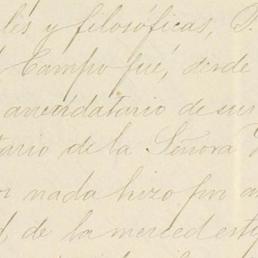 les y filosóficas, P.
Campo fué, desde
arrendatario de sus
tario de la Señora
nada hizo por
de la merced est